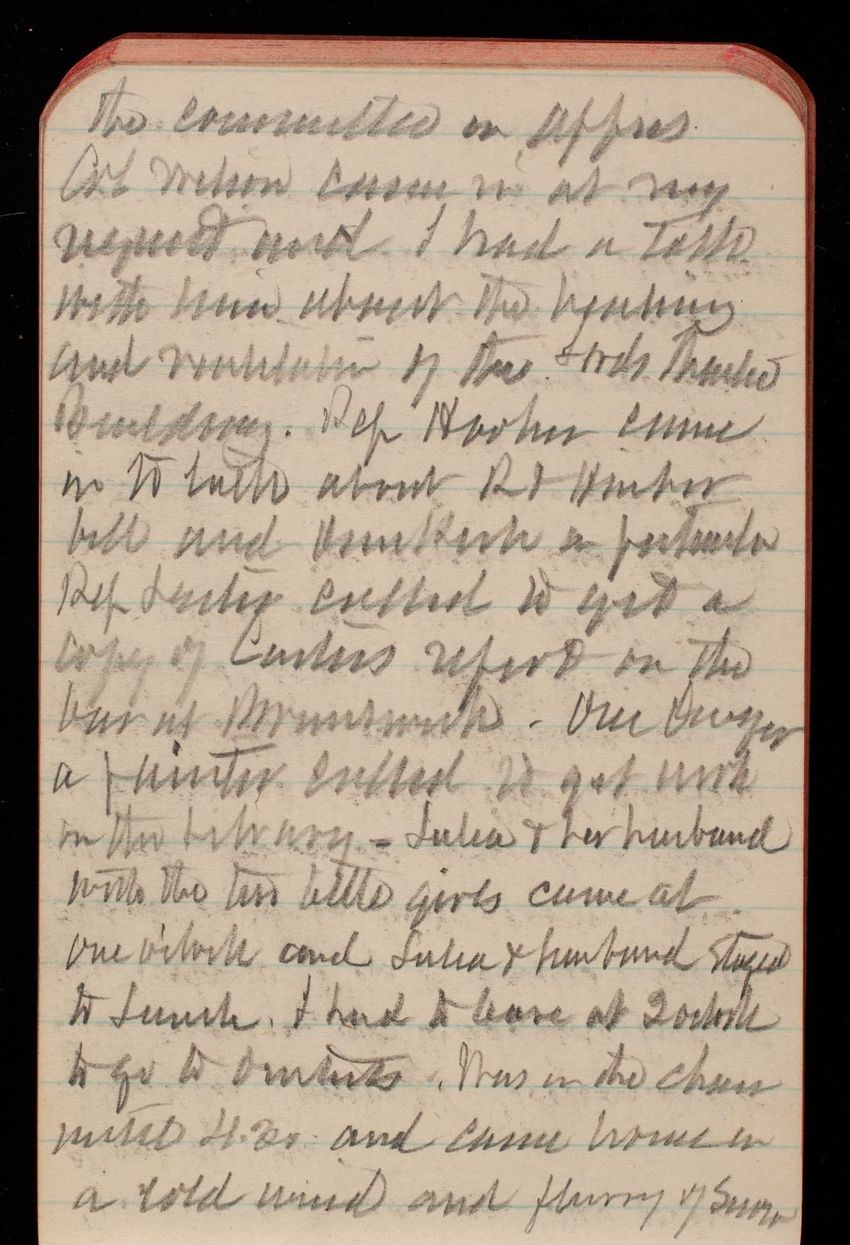 the committee on Appros
Col Wilson came in at my
request and I had a talk
with him about the heating
and ventilation of the Fords Theater
Building. Rep Hooker came
in to talk about R & Harbor
bill and in particular
Rep Lester called to get a
copy of Carters report on the
bar at Brunswick. One Dwyer
a painter called to get work
on the Library - Julia & her husband
with the two little girls came at
one o'clock and Julia & husband stayed
to Lunch. I had to leave at 2 oclock
to go to Dentists. Was in the chair
until 4.30 and came home in
a cold wind and flurry of snow